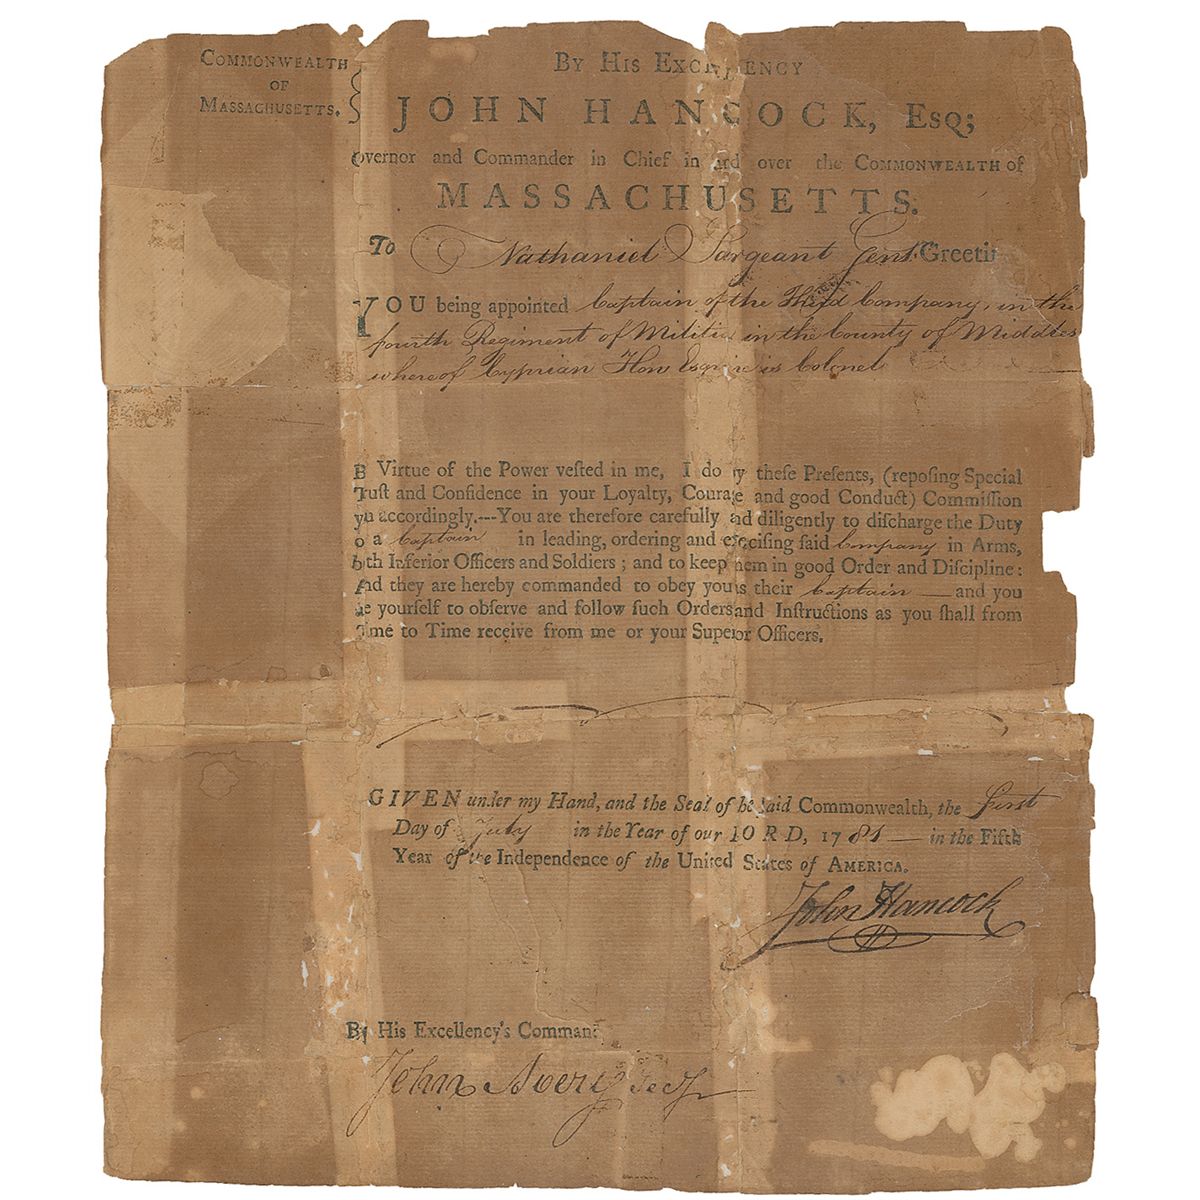 COMMONWEALTH
OF
MASSACHUSETTS.
BY HIS EXCELLENCY
JOHN HANCOCK, ESQ;
overnor and Commander in Chief in and over the COMMONWEALTH of
MASSACHUSETTS.
To Nathaniel Sargeant Gent. Greeti
YOU being appointed Captain of the Third Company, in the
fourth Regiment of Militia in the County of Middles
whereof Cyprian How Esquire is Colonel
B Virtue of the Power veſted in me, I do by theſe Preſents, (repoſing Special
Truſt and Confidence in your Loyalty, Courage and good Conduct) Commiſſion
you accordingly.---You are therefore carefully and diligently to diſcharge the Duty
o a Captain in leading, ordering and exerciſing ſaid Company in Arms,
both Inferior Officers and Soldiers ; and to keep them in good Order and Diſcipline :
And they are hereby commanded to obey you as their Captain — and you
are yourſelf to obſerve and follow ſuch Orders and Inſtructions as you ſhall from
Time to Time receive from me or your Superior Officers.
GIVEN under my Hand, and the Seal of he ſaid Commonwealth, the first
Day of July in the Year of our LORD, 1781 — in the Fifth
Year of the Independence of the United States of AMERICA.
John Hancock
By His Excellency's Comman
John Avery Secy